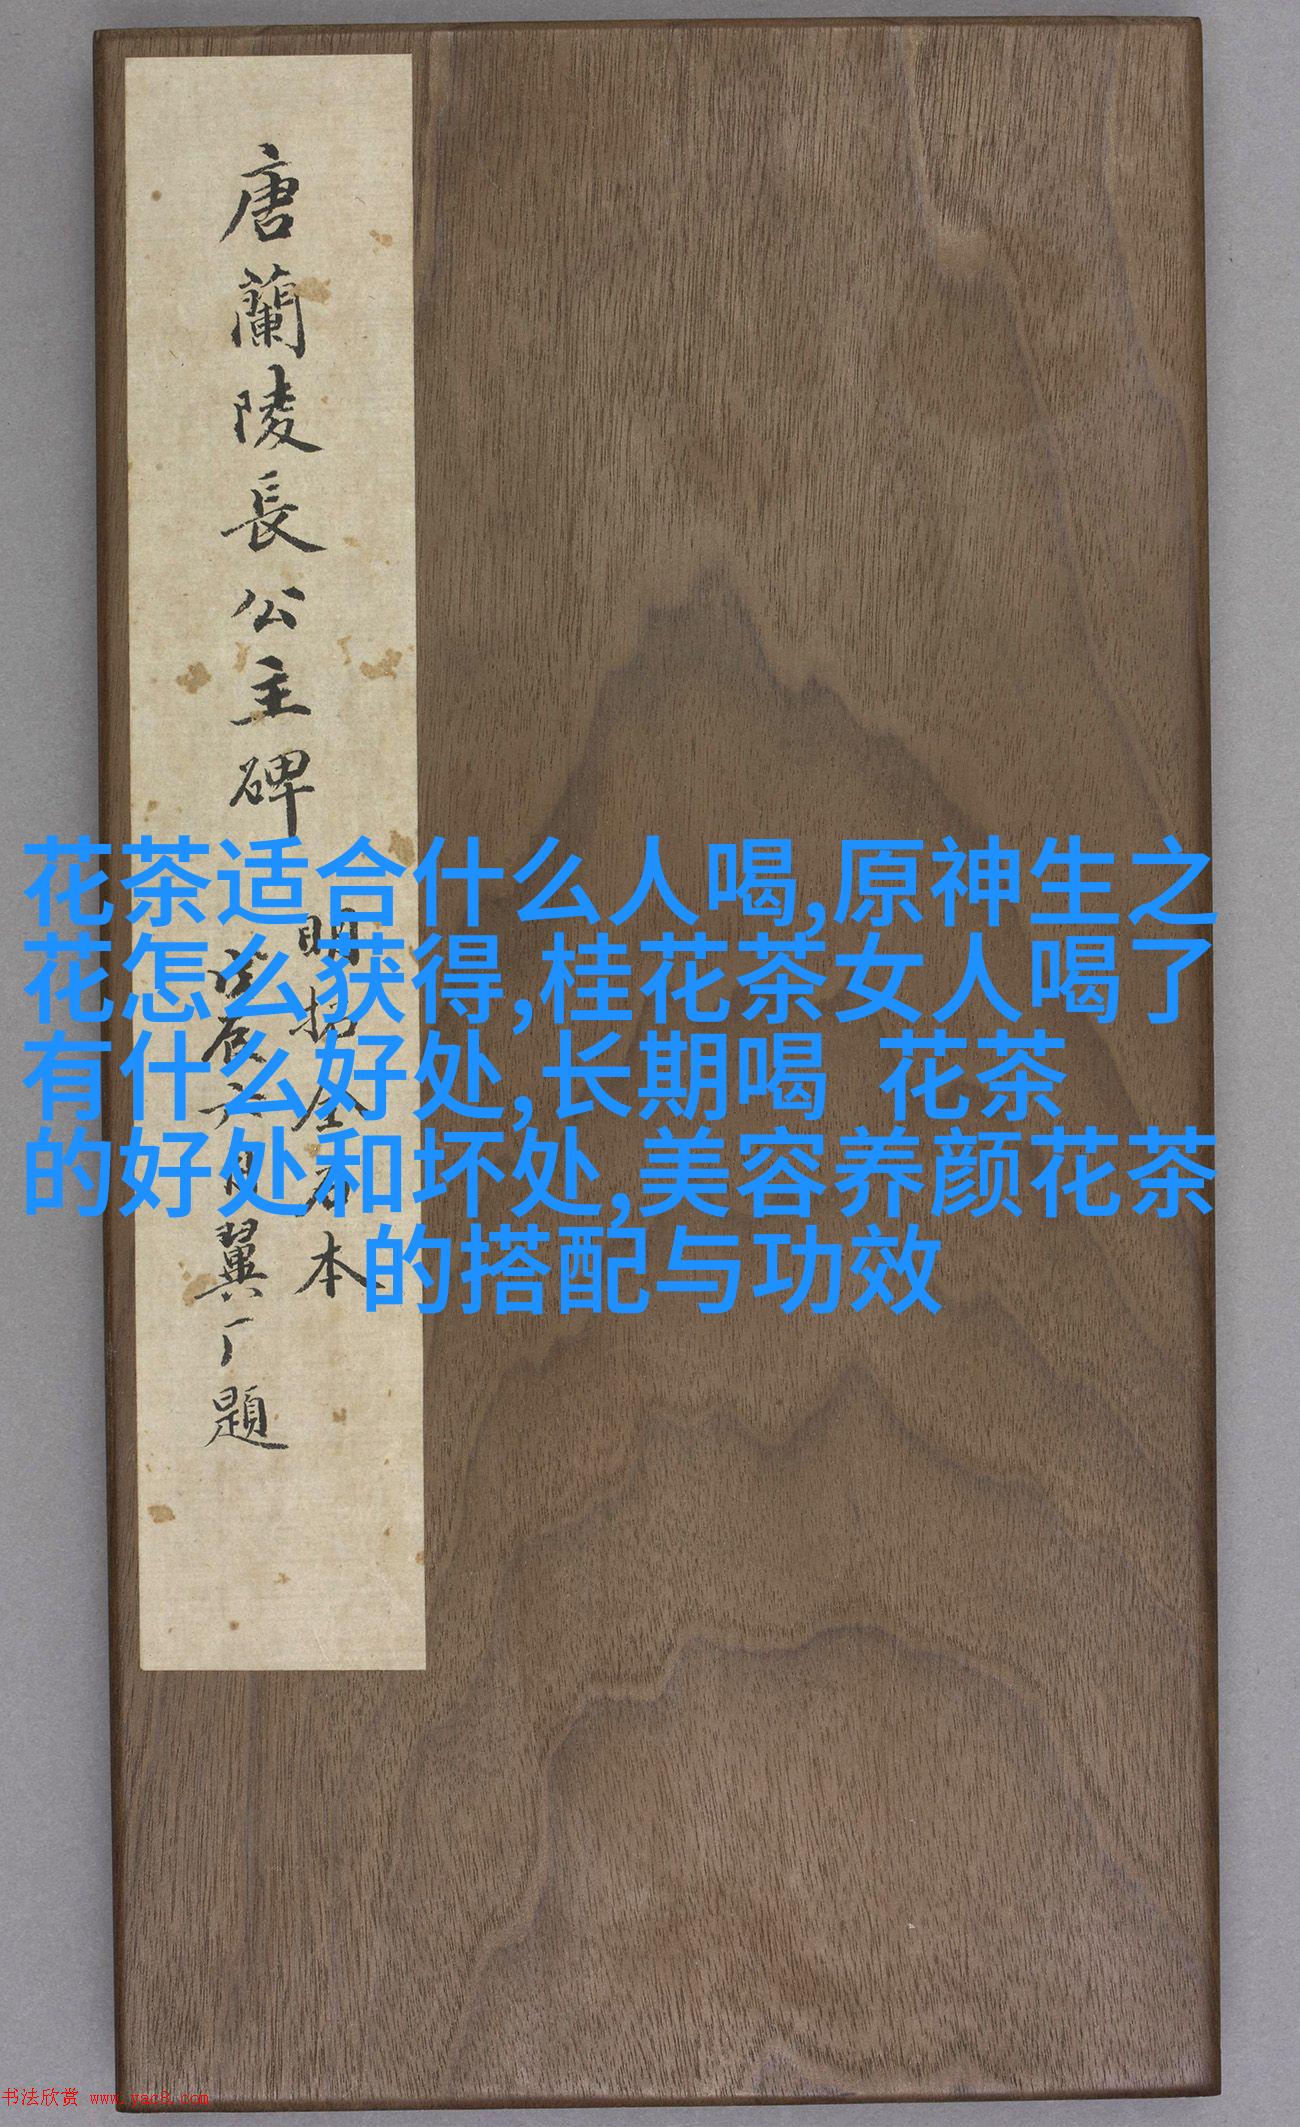 唐蘭陵長公主碑
明拓全石本
翼厂題
花茶适合什么人喝,原神生之
花怎么获得,桂花茶女人喝了
有什么好处,长期喝 花茶
的好处和坏处,美容养颜花茶
的搭配与功效
书法欣赏 www.yac8.com